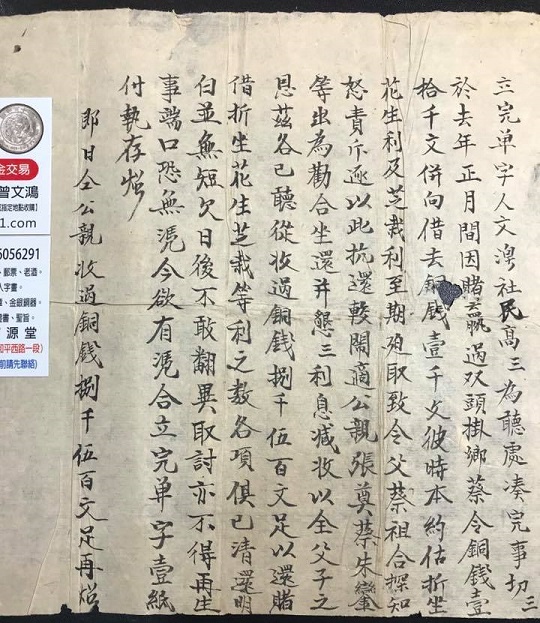 立完单字人文湾社民高三為聽處湊完事切三
於去年正月間因賭贏過双頭掛鄉蔡令銅錢壹
拾千文併向借去銅錢壹千文彼時本約估折坐
花生利及芝栽利至期迫取致令父蔡祖合探知
怒責斥逐以此抗還較鬧適公親張奠蔡朱鑾
等出為勸合坐還并懇三利息減收以全父子之
恩茲各已聽從收過銅錢捌千伍百文足以還賭
借折坐花生芝栽等利之数各項俱已清還明
白並無短欠日後不敢翻異取討亦不得再生
事端口恐無憑今欲有憑合立完单字壹紙
付執存炤
即日仝公親收過銅錢捌千伍百文足再炤
金交易
曾文鴻
指定地點收購】
1.com
6056291
、郵票、老酒。
人字畫。
、金銀銅器。
書、聖旨。
源堂
和平西路一段)
前請先聯絡)